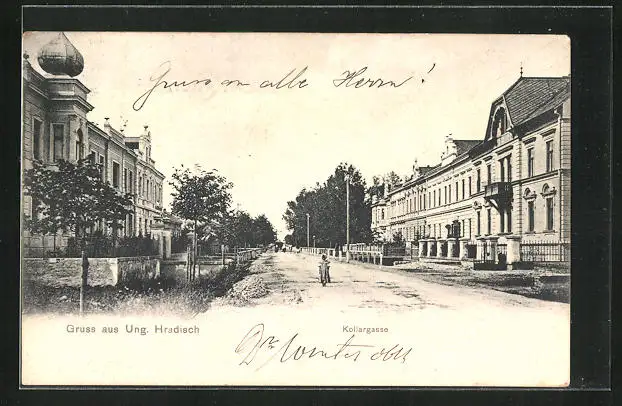 Gruss an alle Herrn!
Gruss aus Ung. Hradisch
Kollargasse
Dr